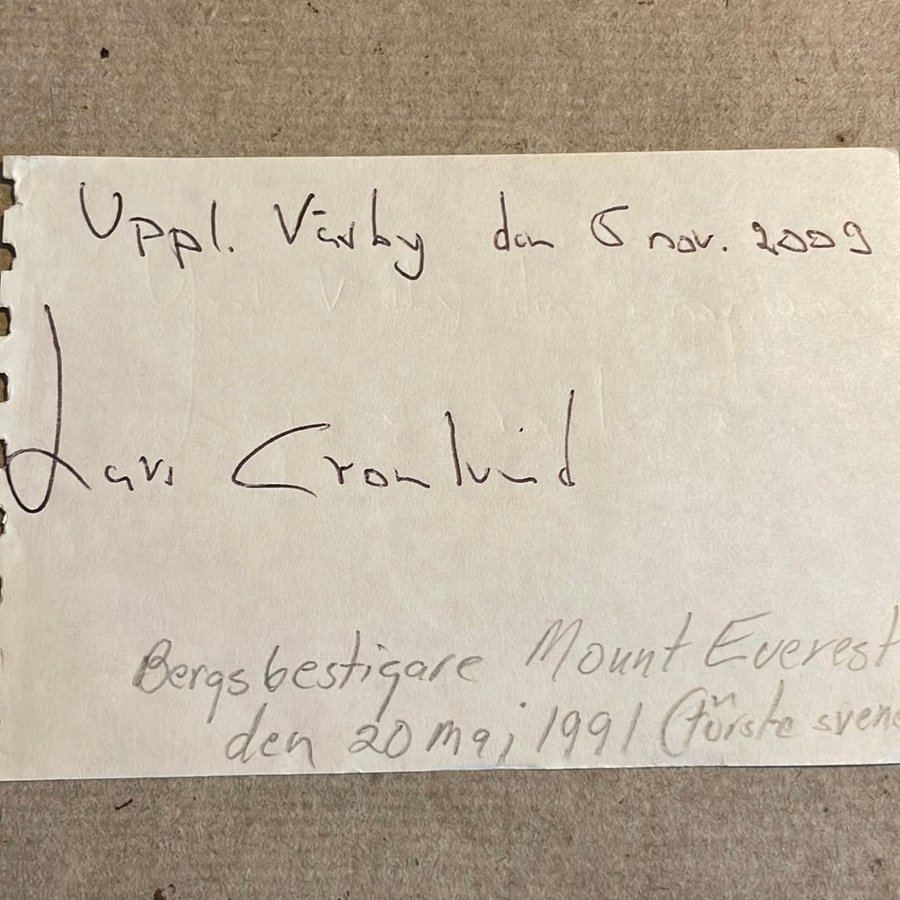 Uppl. Väsby den 5 nov. 2009
Lars Cronlund
Bergsbestigare Mount Everest
den 20 maj 1991 (förste svens